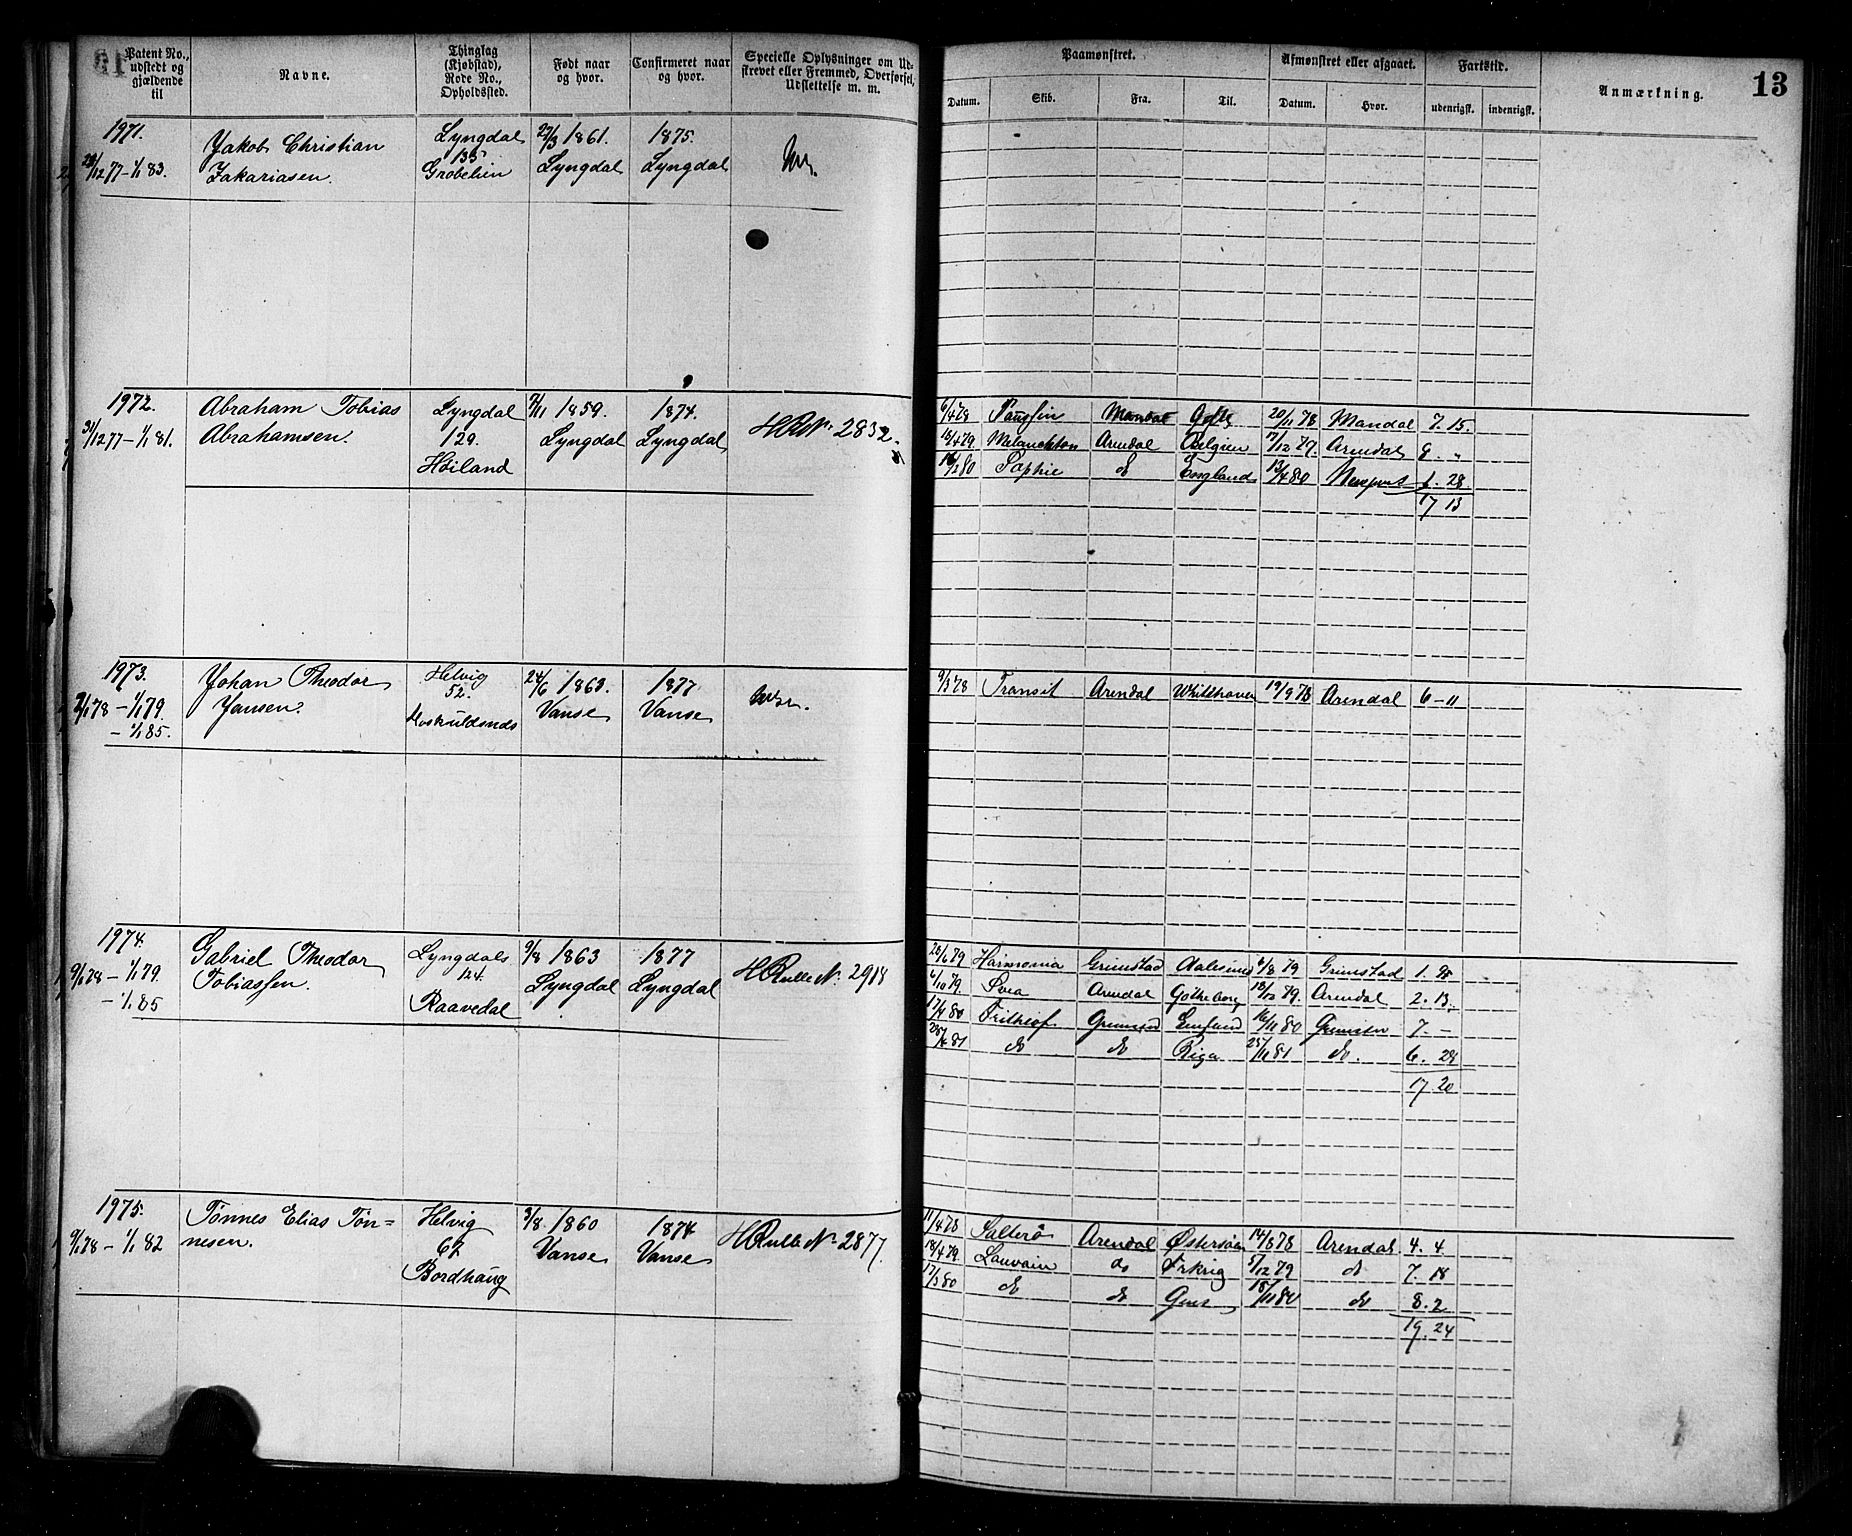 Patent No., udstedt og gjældende til
Navne.
Thinglag (Kjøbstad), Rode No., Opholdssted.
Født naar og hvor.
Confirmeret naar og hvor.
Specielle Oplysninger om Udskrevet eller Fremmed, Overførsel, Udslettelse m. m.
Paamønstret.
Datum.
Skib.
Fra.
Til.
Afmønstret eller afgaaet.
Datum.
Hvor.
Fartstid.
udenrigsk.
indenrigsk.
Anmærkning.
13
1971.
28/12 77 – 1/1 83.
Jakob Christian
Zakariasen.
Lyngdal
135
27/3 1861.
Lyngdal
1875.
Lyngdal
1972.
31/12 77 – 1/1 81.
Abraham Tobias
Abrahamsen.
Lyngdal
129.
Høiland
1859.
Lyngdal
1874.
Lyngdal
2832.
6/4 78 Mandal 20/11 78 Mandal 7. 15.
Melanchton Arendal Belgien 17/12 79. Arendal
Sophie do England Newport 1. 28
17 13
1973.
2/1 78 – 1/1 79.
– 1/1 85.
Johan Theodor
Jansen.
Helvig
52.
24/6 1863.
Vanse
1877
Vanse
9/3 78 Transit Arendal 19/9 78 Arendal 6 – 11
1974.
9/1 78 – 1/1 79.
– 1/1 85
Gabriel Theodor
Tobiassen.
Lyngdals
124.
Raavedal
9/8 1863
Lyngdal
1877
Lyngdal
H Rulle No. 2918
Harmonia Grimstad Aalesund 6/8 79 Grimstad
6/10 79. Svea Arendal Gøtheborg Arendal 2. 13.
17/4 80 Frithiof England 16/11 80 7. –
do do Riga 25/11 81 do. 6. 28
17. 20
1975.
9/1 78 – 1/1 82
Tønnes Elias Tøn=
nesen.
Helvig
67
Bordhaug
3/8 1860
Vanse
1874
Vanse
H Rulle No. 2877.
11/4 78 Salterø Arendal Østersøen 14/8 78 Arendal 4. 4
18/4 79. Louvain do 79 do 7. 18
17/3 80 do do 18/11 80 do 8. 2
19. 24